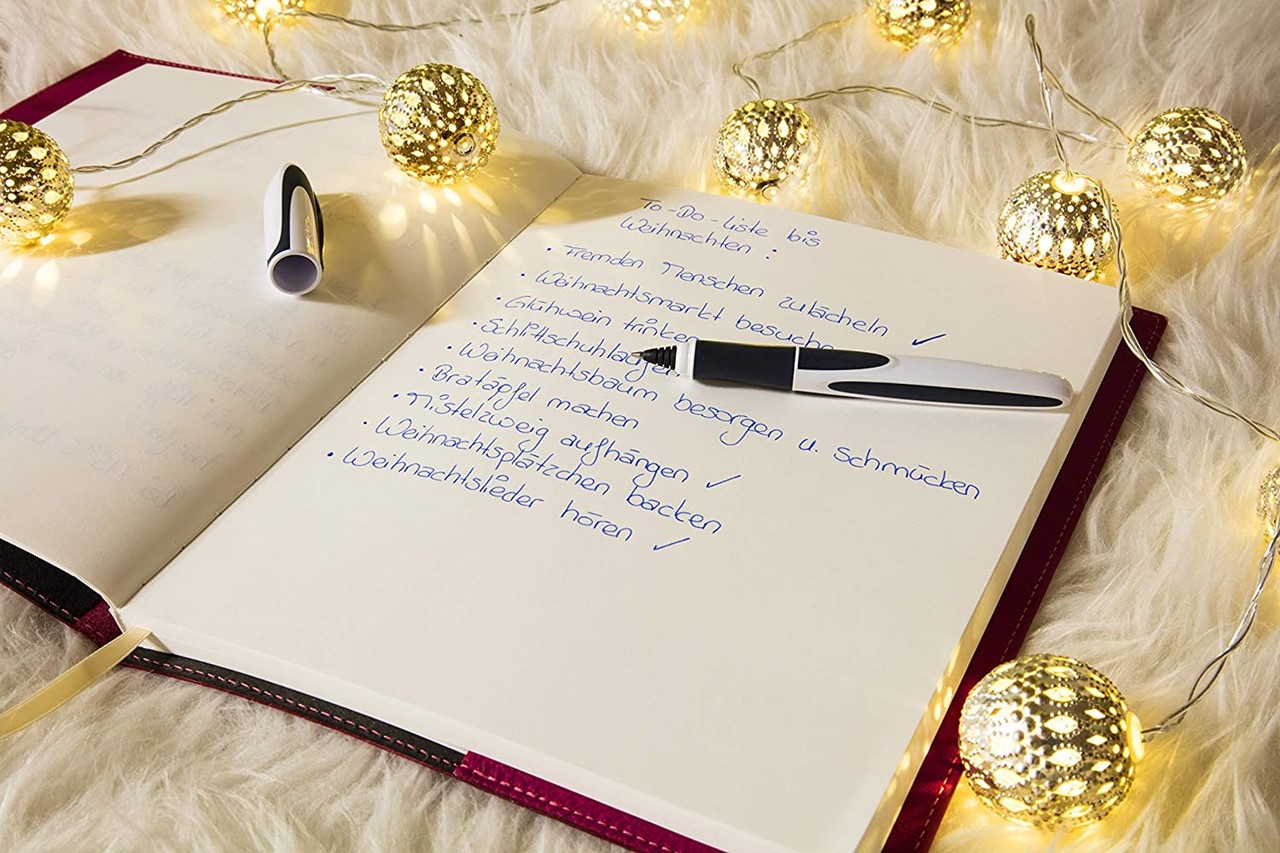 To-Do-Liste bis
Weihnachten :
• Fremden Menschen zulächeln ✓
• Weihnachtsmarkt besuchen
• Glühwein trinken
• Schlittschuhlaufen
• Weihnachtsbaum besorgen u. schmücken
• Bratäpfel machen
• Mistelzweig aufhängen ✓
• Weihnachtsplätzchen backen
• Weihnachtslieder hören ✓